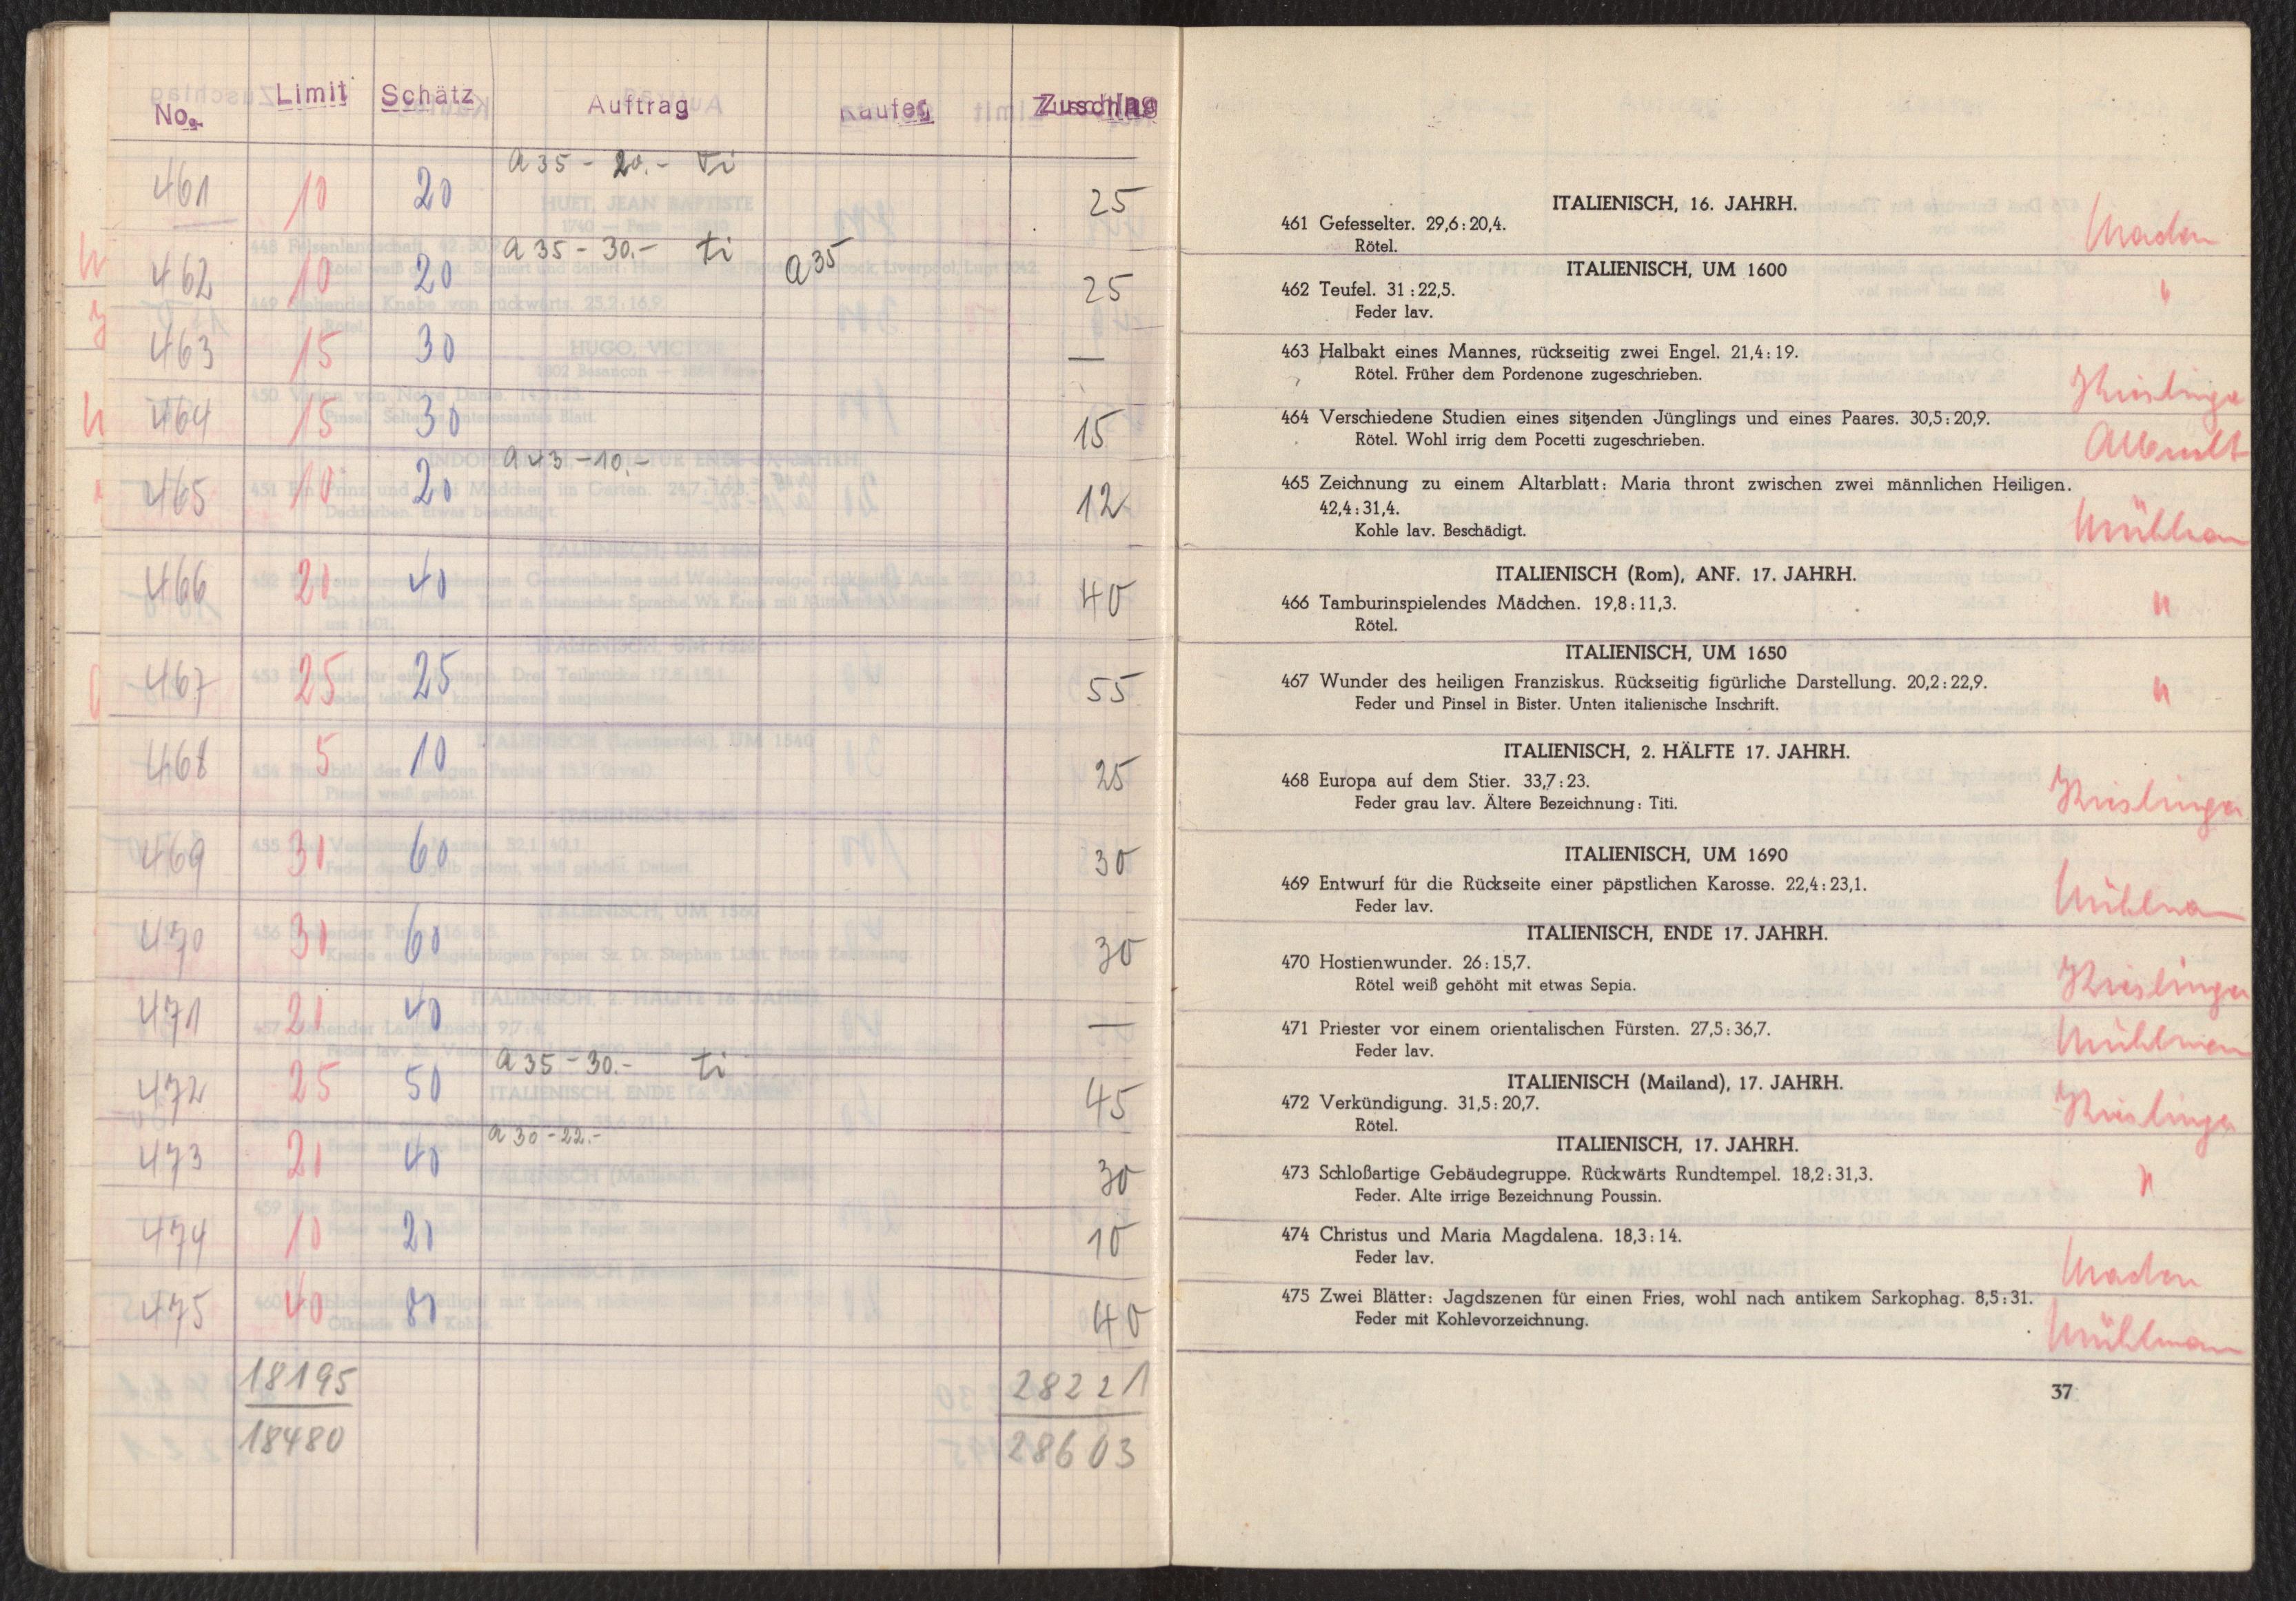 No. Limit Schätz Auftrag Kaufer Zuschlag
a 35 - 20.- ti
461 10 20 25
a 35 - 30.- ti
462 10 20 a 35 25
463 15 30 —
464 15 30 15
a 43 - 10.-
465 10 20 12
466 20 40 40
467 25 25 55
468 5 10 25
469 30 60 30
470 30 60 30
471 20 40 —
a 35 - 30.- ti
472 25 50 45
a 30 - 22.-
473 20 40 30
474 10 20 10
475 40 80 40
18195 28221
18480 28603
ITALIENISCH, 16. JAHRH.
461 Gefesselter. 29,6 : 20,4.
Rötel.
ITALIENISCH, UM 1600
462 Teufel. 31 : 22,5.
Feder lav.
463 Halbakt eines Mannes, rückseitig zwei Engel. 21,4 : 19.
Rötel. Früher dem Pordenone zugeschrieben.
464 Verschiedene Studien eines sitzenden Jünglings und eines Paares. 30,5 : 20,9.
Rötel. Wohl irrig dem Pocetti zugeschrieben.
465 Zeichnung zu einem Altarblatt: Maria thront zwischen zwei männlichen Heiligen.
42,4 : 31,4.
Kohle lav. Beschädigt.
ITALIENISCH (Rom), ANF. 17. JAHRH.
466 Tamburinspielendes Mädchen. 19,8 : 11,3.
Rötel.
ITALIENISCH, UM 1650
467 Wunder des heiligen Franziskus. Rückseitig figürliche Darstellung. 20,2 : 22,9.
Feder und Pinsel in Bister. Unten italienische Inschrift.
ITALIENISCH, 2. HÄLFTE 17. JAHRH.
468 Europa auf dem Stier. 33,7 : 23.
Feder grau lav. Ältere Bezeichnung: Titi.
ITALIENISCH, UM 1690
469 Entwurf für die Rückseite einer päpstlichen Karosse. 22,4 : 23,1.
Feder lav.
ITALIENISCH, ENDE 17. JAHRH.
470 Hostienwunder. 26 : 15,7.
Rötel weiß gehöht mit etwas Sepia.
471 Priester vor einem orientalischen Fürsten. 27,5 : 36,7.
Feder lav.
ITALIENISCH (Mailand), 17. JAHRH.
472 Verkündigung. 31,5 : 20,7.
Rötel.
ITALIENISCH, 17. JAHRH.
473 Schloßartige Gebäudegruppe. Rückwärts Rundtempel. 18,2 : 31,3.
Feder. Alte irrige Bezeichnung Poussin.
474 Christus und Maria Magdalena. 18,3 : 14.
Feder lav.
475 Zwei Blätter: Jagdszenen für einen Fries, wohl nach antikem Sarkophag. 8,5 : 31.
Feder mit Kohlevorzeichnung.
37